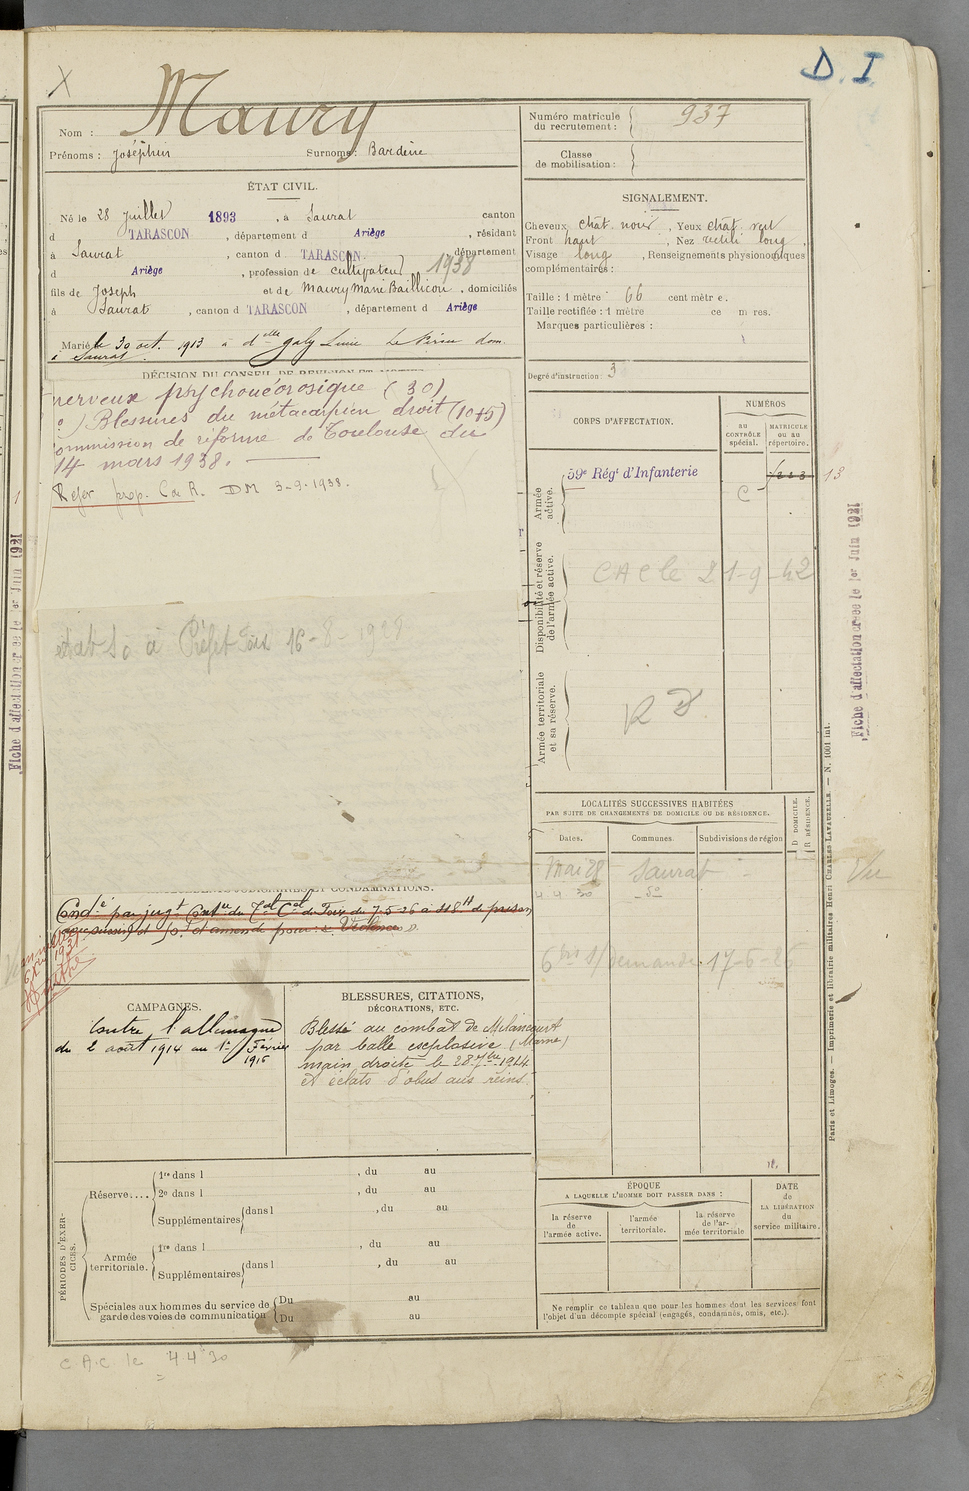 X
D. I.
Nom : Maury
Prénoms : Joséphin Surnoms : Bardeine
ÉTAT CIVIL.
Né le 28 Juillet 1893, à Saurat canton
d TARASCON, département d Ariège, résidant
à Saurat, canton d TARASCON, département
d Ariège, profession de cultivateur 1938
fils de Joseph et de Maury Marie Baillicou, domiciliés
à Saurat, canton d TARASCON, département d Ariège
Marié le 30 oct. 1913 à dlle Galy Lucie dom.
à Saurat.
DÉCISION DU CONSEIL DE REVISION ET MOTIFS
nerveux psychonévrosique (30)
2°) Blessures du métacarpien droit (10+5)
Commission de réforme de Toulouse du
14 mars 1938.
Refor prop. C de R. DM 3-9-1938.
état S à Préfet 16-8-1928
CONDAMNATIONS.
Condé par jugt Contre du Tal Cel de Foix du 7-5-26 à 8 H de prison
et 50f d'amende pour : « Violences ».
CAMPAGNES.
Contre l'allemagne
du 2 août 1914 au 1er Février
1916
BLESSURES, CITATIONS,
DÉCORATIONS, ETC.
Blessé au combat de Mélancourt
par balle explosive (Marne)
main droite le 28 7bre 1914
et éclats d'obus aux reins.
PÉRIODES D'EXERCICES.
Réserve....
1re dans l , du au
2e dans l , du au
Supplémentaires dans l , du au
Armée territoriale.
1re dans l , du au
Supplémentaires dans l , du au
Spéciales aux hommes du service de Du au
garde des voies de communication Du au
C.A.C. le 4 4 30
Numéro matricule
du recrutement : 937
Classe
de mobilisation :
SIGNALEMENT.
Cheveux chât. noir, Yeux chât. vert
Front haut, Nez rectili long,
Visage long, Renseignements physionomiques
complémentaires :
Taille : 1 mètre 66 centimètre.
Taille rectifiée : 1 mètre ce m res.
Marques particulières :
Degré d'instruction : 3
CORPS D'AFFECTATION.
NUMÉROS
AU CONTRÔLE spécial.
MATRICULE ou au répertoire.
Armée active.
59e Régt d'Infanterie
13
C
Disponibilité et réserve de l'armée active.
CAC le 21-9-42
Armée territoriale et sa réserve.
R D
LOCALITÉS SUCCESSIVES HABITÉES
PAR SUITE DE CHANGEMENTS DE DOMICILE OU DE RÉSIDENCE.
Dates. Communes Subdivisions de région
D DOMICILE. R RÉSIDENCE.
Mai 28 Saurat
4 4 30 do
Vu
6 bis s/ demande 17-6-
ÉPOQUE
A LAQUELLE L'HOMME DOIT PASSER DANS :
la réserve de l'armée active.
l'armée territoriale.
la réserve de l'armée territoriale
DATE de LA LIBÉRATION du service militaire.
Ne remplir ce tableau que pour les hommes dont les services font
l'objet d'un décompte spécial (engagés, condamnés, omis, etc.).
Fiche d'affectation créée le 1er Juin 1931
Fiche d'affectation créée le 1er Juin 1931
Paris et Limoges. — Imprimerie et librairie militaires Henri CHARLES-LAVAUZELLE. — N. 1001 int.